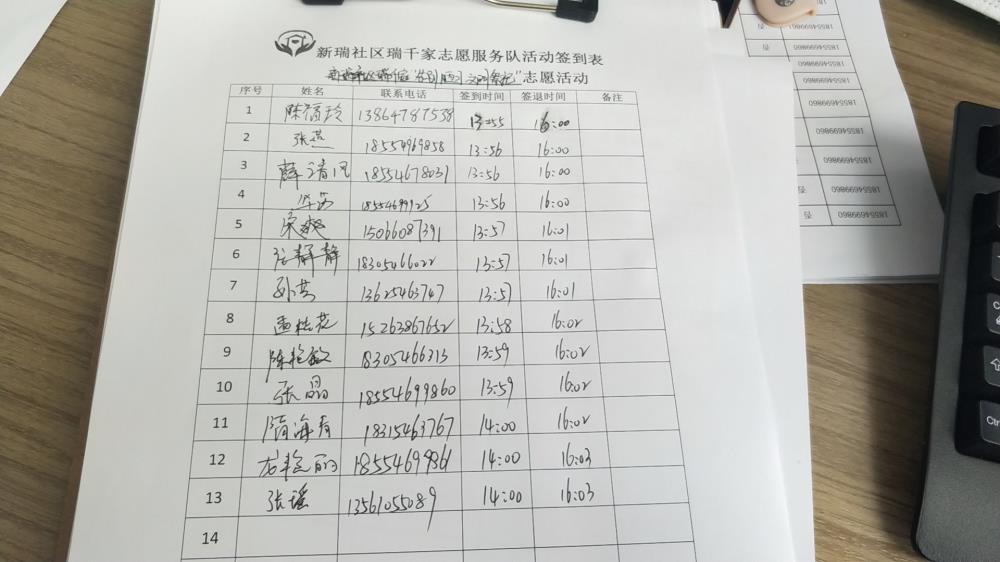 新瑞社区瑞千家志愿服务队活动签到表
志愿活动
序号 姓名 联系电话 签到时间 签退时间 备注
1 陈富玲 13864787538 13:55 16:00
2 张燕 18554969858 13:56 16:00
3 薛清风 18554678031 13:56 16:00
4 18554699125 13:56 16:00
5 宋爽 15066087391 13:57 16:01
6 张静静 18305466022 13:57 16:01
7 孙芸 13625463747 13:57 16:01
8 孟桂花 15263867652 13:58 16:02
9 陈艳敏 18305466313 13:59 16:02
10 张晶 18554699860 13:59 16:02
11 隋海青 18315463767 14:00 16:02
12 尤艳丽 18554699861 14:00 16:03
13 张瑶 13561055089 14:00 16:03
14
否 18554699860
否 18554699860
18554699860
18554699860
18554699860
否 18554699860
否 18554699860
Ctrl